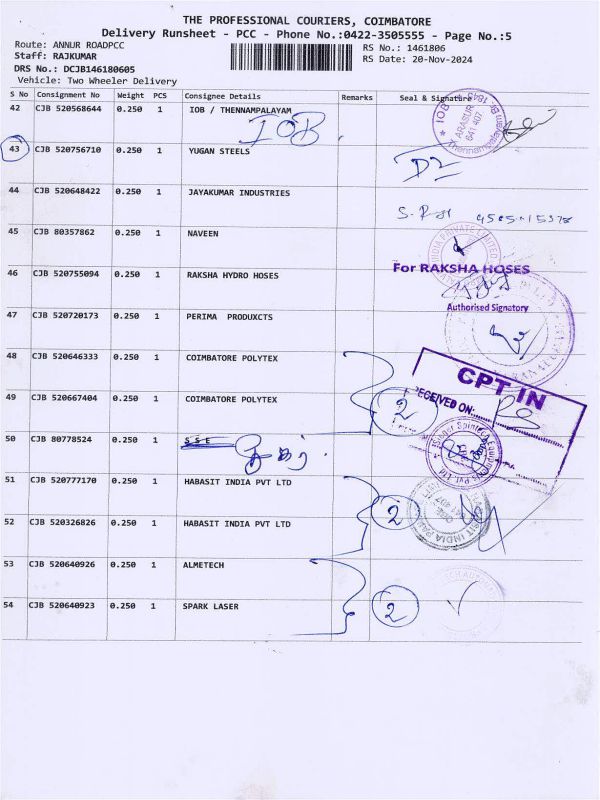 THE PROFESSIONAL COURIERS, COIMBATORE
Delivery Runsheet - PCC - Phone No.:0422-3505555 - Page No.:5
Route: ANNUR ROADPCC
RS No.: 1461806
Staff: RAJKUMAR
RS Date: 20-Nov-2024
DRS No.: DCJB146180605
Vehicle: Two Wheeler Delivery
S No Consignment No Weight PCS Consignee Details Remarks Seal & Signature
42 CJB 520568644 0.250 1 IOB / THENNAMPALAYAM
IOB
IOB ARASUR 641 407 Thennampalayam Br. 1943
43 CJB 520756710 0.250 1 YUGAN STEELS
44 CJB 520648422 0.250 1 JAYAKUMAR INDUSTRIES
45 CJB 80357862 0.250 1 NAVEEN
46 CJB 520755094 0.250 1 RAKSHA HYDRO HOSES
For RAKSHA HOSES
Authorised Signatory
47 CJB 520720173 0.250 1 PERIMA PRODUXCTS
48 CJB 520646333 0.250 1 COIMBATORE POLYTEX
CPT IN
49 CJB 520667404 0.250 1 COIMBATORE POLYTEX
2
RECEIVED ON:
50 CJB 80778524 0.250 1 S S E
51 CJB 520777170 0.250 1 HABASIT INDIA PVT LTD
52 CJB 520326826 0.250 1 HABASIT INDIA PVT LTD
2
53 CJB 520640926 0.250 1 ALMETECH
54 CJB 520640923 0.250 1 SPARK LASER
2